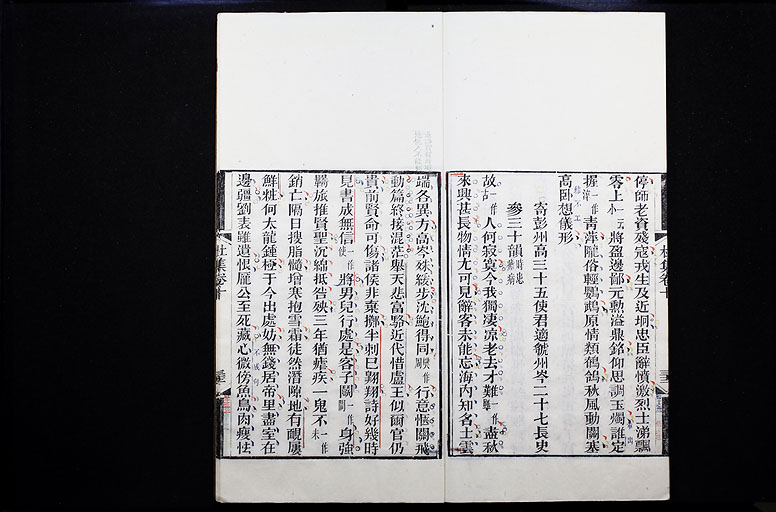 停師老資殘寇戎生及近坰忠臣辭憤激烈士涕飄
零上一元小將盈邊鄙元勲溢鼎銘仰思調玉燭誰定
握一作淬青萍隴俗輕鸚鵡原情類鶺鴒秋風動關塞
高卧想儀形
寄彭州高三十五使君適虢州岑二十七長史
參三十韻時患瘧病
故一作古人何寂寞今我獨凄凉老去才難一作雖盡秋
來興甚長物情尤可見辭客未能忘海內知名士雲
端各異方高岑殊緩步沈鮑得同一作周行意愜關飛
動篇終接混茫舉天悲富駱近代惜盧王似爾官仍
貴前賢命可傷諸侯非棄擲半刺已翺翔詩好幾時
見書成無信一作使將男兒行處是客子鬬一作鬭身強
羈旅推賢聖沉綿抵咎殃三年猶瘧疾一鬼不一作未
銷亡隔日搜脂髓增寒抱雪霜徒然潛隙地有靦屢
鮮粧何太龍鍾極于今出處妨無錢居帝里盡室在
邊疆劉表雖遺恨龐公至死藏心微傍魚鳥肉瘦怯
杜集卷十
杜集卷十